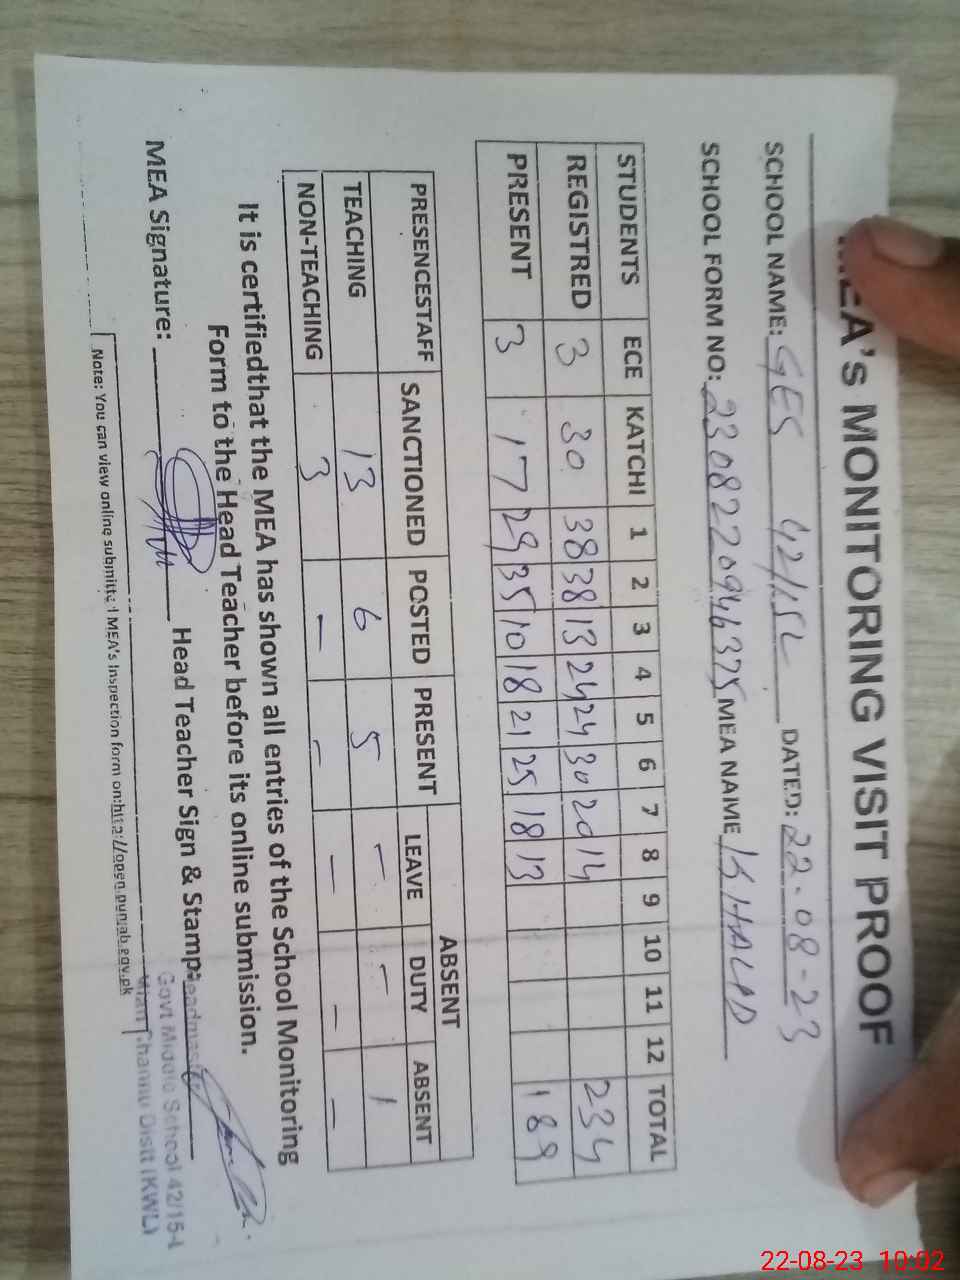 MEA's MONITORING VISIT PROOF
SCHOOL NAME: GES 42/15L DATED: 22-08-23
SCHOOL FORM NO: 2308220946375 MEA NAME KHALID
STUDENTS ECE KATCHI 1 2 3 4 5 6 7 8 9 10 11 12 TOTAL
REGISTRED 3 30 38 38 13 24 24 30 20 14 234
PRESENT 3 17 29 35 10 18 21 25 18 13 189
PRESENCESTAFF SANCTIONED POSTED PRESENT ABSENT
LEAVE DUTY ABSENT
TEACHING 13 6 5 - - 1
NON-TEACHING 3 - - - - -
It is certifiedthat the MEA has shown all entries of the School Monitoring
Form to the Head Teacher before its online submission.
MEA Signature: Head Teacher Sign & Stamp:
Headmaster
Govt Middle School 42/15-L
Mian Channu Distt (KWL)
Note: You can view online submitted MEA's Inspection form on:http://open.punjab.gov.pk
22-08-23 10:02